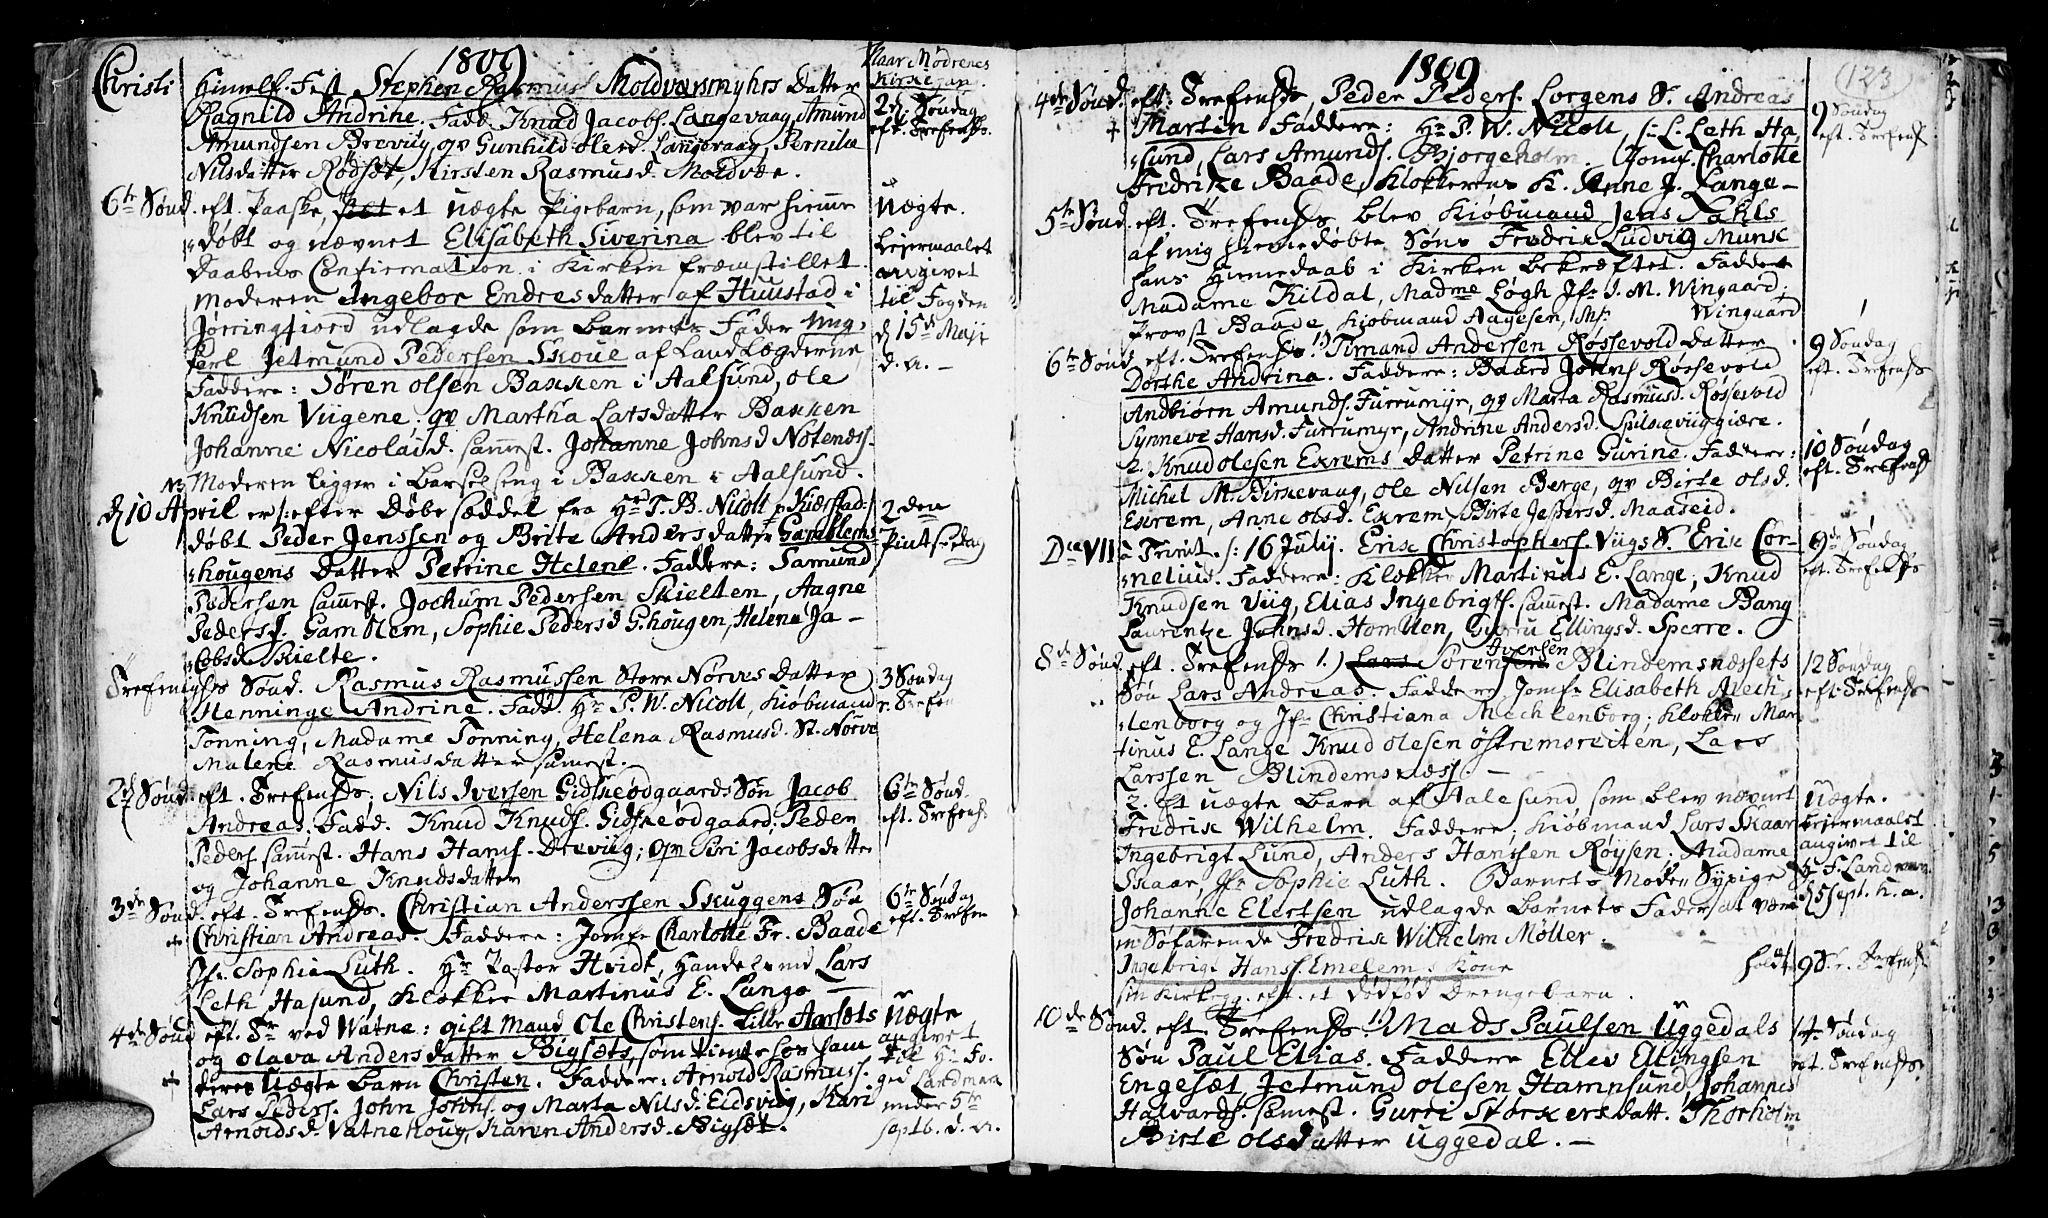 1809
Naar Mødrenes
Kirkegan
Christi Himelf. Fest Stephen Rasmuss Moldværsmyhrs Datter
Ragnild Andrine. Fadd. Knud Jacobs. Langevaag, Amund
Amundsen Brevüg, qv Gunhild Olesd. Langevaag, Pernille
Nilsdatter Rödset, Kirsten Rasmusd. Moldvær.
2d Søndag
eft. Trefens.
6te Sønd. eft. Paaske, et uægte Pigebarn, som var hieme
døbt og nævnet Elisabeth Siverina blev til
Daabens Confirmation i Kirken fremstillet.
Moderen Ingebor Endresdatter af Huustad i
Jørringfiord udlagde som Barnets Fader ung-
Perl Jetmund Pedersen Skoue af Landlægderne
Faddere: Søren Olsen Bakken i Aalsund, Ole
Knudsen Viigene. qv Martha Larsdatter Bakken
Johanne Nicolaid. samest. Johanne Johnsd Notenes.
NB Moderen ligger i Barselseng i Bakken i Aalsund.
Uægte.
Leiermaalet
angivet
til Fogden
d 15de Maji
d. a. -
d 10 April er efter Døbesæddel fra Hr P. B. Nicoll
døbt Peder Jenssen og Brite Andersdatter Gamblems-
hougens Datter Petrine Helene. Faddere: Samund
Pedersen samest. Jochum Pedersen Skielten, Aagne
Pedersd. Gamblem, Sophie Pedersd G.hougen, Helena Ja-
cobsd. Skielte.
2den
Pintsedag
Trefenighs Sønd. Rasmus Rasmussen Store Nørves Datter
Henninge Andrine. Fadd. Hr P. W. Nicoll, Kiøbmand
Tonning, Madame Tonning, Helena Rasmusd. St. Nørve
Malene Rasmusdatter samest.
3 Søndag
e. Trefen
2d Sønd. eft. Trefensds; Nils Iversen Gidskeødgaards Søn Jacob
Andreas. Fadd. Knud Knuds. Gidskeødgaard, Peder
Peders samest. Hans Hans. Brevüg; qv Siri Jacobsdatter
og Johanne Knudsdatter
6te Sønd.
eft. Trefens.
3de Sønd. eft. Trefensds. Christian Anderssen Skuggens Søn
Christian Andreas. Faddere: Jomf. Charlotte Fr. Baade
Jf. Sophia Luth. Hr Pastor Hvidt, Handelsmd Lars
Leth Hasund, Klokker Martinus E. Lange
6te Søndag
eft. Trefen
4de Sønd eft. Tr ved Watne: gift Mand Ole Christens. Lille Aarsets
og Olava Andersdatter Bigsets, som tiente hos ham
deres Uægte Barn Christen. Faddere: Arnold Rasmuss.
Lars Peders. John Johns. og Marta Nilsd. Eidsvüg, Kari
Arnoldsd. Vatnehoug, Karen Andersd. Bigset.
Uægte
angivet
til Hr Fo-
ged Landmark
under 5te
septb. d. a.
1809
123
4de Sønd. eft: Trefensds, Peder Peders. Lorgens S. Andreas
Martin Faddere: Hr P. W. Nicoll, S. L. Leth Ha-
sund, Lars Amunds. Bjorgeholm. Jomf. Charlotte
Fredrike Baade, Klokkerens K. Anne J. Lange-
9 Søndag
eft. Trefens
5te Sønd. eft. Trefensds blev Kiøbmand Jens Dahls
af mig hiemedøbte Søns Fredrik Ludvig Munk
hans Hiemedaab i Kirken bekræftet. Faddere
Madame Kildal, Madme Løgh Jfr I. M. Wingaard;
Provst Baade, Kiøbmand Aagesen, Wingaard
6te Sønd. eft. Trefensds 1) Timand Andersen Røssevold Datter
Dorthe Andrina. Faddere: Baard Johns Røssevold
Andbiørn Amunds. Furrumyr, qv Marta Rasmusd. Røssevold
Synneve Hansd. Furrumyr, Andrine Andersd. Spilkeviiggiære.
9 Søndag
eft. Trefensds
2. Knud Olesen Exrems Datter Petrine Gurine. Faddere:
Michel M. Birkevaag, Ole Nilsen Berge, qv Birte Olsd.
Exrem, Anne Olsd. Exrem, Birte Jespersd. Maaseid.
10 Søndag
eft. Trefensd
Dca VII a Trinit. 16 Julij. Erik Christophers. Viigs S. Erik Cor-
nelius. Faddere: Klokker Martinus E. Lange, Knud
Knudsen Viig, Elias Ingebrigts. samest. Madame Bang
Laurentze Johnsd. Homlen, Gurru Ellingsd. Sperre.
9de Søndag
eft. Trefensds
8de Sønd. eft. Trefensds 1.) Lars Sørensen Iversen Blindemsnessets
Søn Lars Andreas. Faddere: Jomfr Elisabeth Mech-
lenborg og Jfr Christiana Mechlenborg; Klokker Mar-
tinus E. Lange Knud Olesen Østremsreiten, Lars
Larssen Blindemsness.
12 Søndag
eft. Trefensds
2. Et uægte Barn af Aalesund som blev nævnt
Fredrik Wilhelm. Faddere; Kiøbmand Lars Skaar
Ingebrigt Lund, Anders Hansen Røysen. Madame
Skaar, Jfr Sophie Luth. Barnets Moder Sypige
Johanne Elertsen udlagde Barnets Fader at være
en Søfarende Fredrik Wilhelm Møller.
Uægte.
Leiermaalet
angivet til
Landmark
d 5 sept. h. a.
Ingebrigt Hanss. Emelems Kone holdt
sin Kirkegg. eft. et dødfød Drengebarn.
9 S. e. Trefens
10de Sønd. eft. Trefensds. 1) Mads Paulsen Uggedals
Søn Paul Elias. Faddere Elles Ellingsen
Engeset, Jetmund Olesen Hamnsund, Johannes
Halvards. samest. Gurri Størkersdatt. Thorholm
Birte Olsdatter Uggedal. -
14. Søndag
eft. Trefensds.